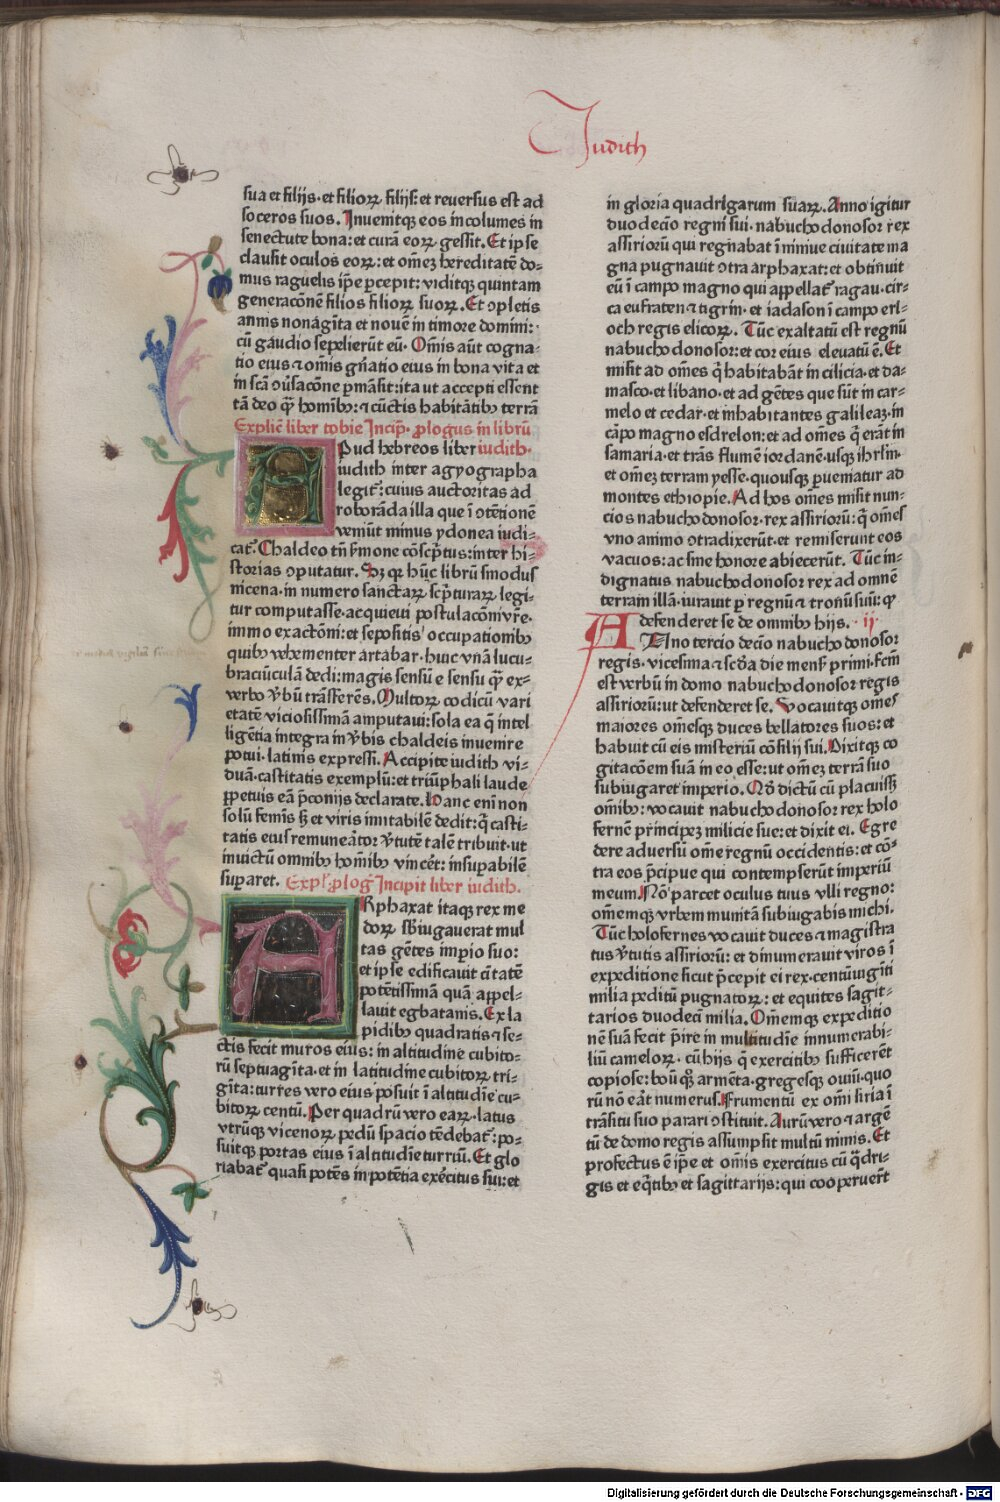 Judith
sua et filijs·et filioꝝ filijs: et reuersus est ad
soceros suos. Inuenitqꝫ eos incolumes in
senectute bona: et curā eoꝝ gessit. Et ipse
clausit oculos eoꝝ: et om̄eꝫ hereditatē do-
mus raguelis ip̄e ꝑcepit: viditqꝫ quintam
generacōnē filios filioꝝ suoꝝ. Et ↄpletis
annis nonaginta et nouē in timore domini:
cū gaudio sepelierūt eū. Om̄is aūt cogna-
tio eius ⁊ om̄is gn̄atio eius in bona vita et
in sc̄ā ↄūsacōne ꝑmāsit: ita ut accepti essent
tā deo qꝫ̄ homībꝫ: ⁊ cūctis habitātibꝫ terrā
Explic̄ liber tobie Incip̄. ꝓlogus in librū
Apud hebreos liber iudith.
iudith inter agyographa
legit̄: cuius auctoritas ad
roborāda illa que ī ↄtētionē
veniūt minus ydonea iudi-
cat̄. Chaldeo tn̄ s̄mone cōsc̄ptus: inter hi-
storias ↄputatur. Sꝫ qꝛ hūc librū sinodus
nicena·in numero sanctaꝝ sc̄pturaꝝ legi-
tur computasse·acquieui postulacōni vr̄e·
immo exactōni: et sepositis occupationibꝫ
quibꝫ vehementer artabar·huic vnā lucu-
braciūculā dedi: magis sensū e sensu qꝫ̄ ex
verbo v̄bū trāsferēs. Multoꝝ codicū vari
etatē viciosissimā amputaui: sola ea q̄ intel
ligētia integra in v̄bis chaldeis inuenire
potui·latinis expressi. Accipite iudith vi-
duā·castitatis exemplū: et triūphali laude
ꝑpetuis eā p̄conijs declarate. Hanc enī non
solū feminis sꝫ et viris imitabilē dedit: q̄ casti-
tatis eius remunerator v̄tutē talē tribuit·ut
inuictū omnibꝫ homībꝫ vincēt: insuꝑabilē
suꝑaret. Expl̄. ꝓloḡ Incipit liber iudith.
ARphaxat itaqꝫ rex me
doꝝ s̄biugauerat mul
tas gētes impio suo:
et ipse edificauit ciuitatē
potētissimā quā appel-
lauit egbatanis. Ex la
pidibꝫ quadratis ⁊ se-
ctis fecit muros eius: in altitudine cubito-
rū septuagīta·et in latitudine cubitoꝝ tri-
gīta: turres vero eius posuit ī altitudīe cu-
bitoꝝ centū. Per quadrū vero eaꝝ·latus
vtrūqꝫ vicenoꝝ pedū spacio tēdebat̄: po-
suitqꝫ portas eius ī altitudīe turriū. Et glo
riabat̄ quasi potēs in potētia exercitus sui: et
in gloria quadrigarum suaꝝ. Anno igitur
duodecīo regni sui·nabuchodonosor rex
assirioꝝ qui regnabat ī niniue ciuitate ma
gna pugnauit ↄtra arphaxat: et obtinuit
eū ī campo magno qui appellat̄ ragau·cir-
ca eufraten ⁊ tigrin·et iadason ī campo eri-
och regis elicoꝝ. Tūc exaltatū est regnū
nabuchodonosor: et cor eius eleuatū ē. Et
misit ad om̄es q̄ habitabāt in cilicia·et da-
masco·et libano·et ad gētes que sūt in car-
melo et cedar·et inhabitantes galileaꝫ·in
cāpo magno esdrelon: et ad om̄es q̄ erāt in
samaria·et trās flumē iordanē·usqꝫ ihrl̄m·
et om̄eꝫ terram yesse·quousqꝫ ꝑueniatur ad
montes ethiopie. Ad hos om̄es misit nun-
cios nabuchodonosor·rex assirioꝝ: q̄ om̄es
vno animo ↄtradixerūt·et remiserunt eos
vacuos: ac sine honore abiecerūt. Tūc in-
dignatus nabuchodonosor rex ad omnē
terram illā·iurauit ꝑ regnū ⁊ tronū suū: qꝫ
defenderet se de omnibꝫ hijs. ·ij·
ANno tercio decīo nabuchodonosor
regis·vicesima ⁊ sc̄da die mens̄ primi·fc̄m
est verbū in domo nabuchodonosor regis
assirioꝝ: ut defenderet se. Vocauitqꝫ om̄es
maiores om̄esqꝫ duces bellatores suos: et
habuit cū eis misteriū cōsilij sui. Dixitqꝫ co
gitacōem suā in eo esse: ut om̄eꝫ terrā suo
subiugaret imperio. Qd̄ dictū cū placuissꝫ
om̄ibꝫ: vocauit nabuchodonosor rex holo
fernē principeꝫ milicie sue: et dixit ei. Egre
dere aduersū om̄e regnū occidentis: et cō-
tra eos p̄cipue qui contempserūt imperiū
meum. Nō parcet oculus tuus vlli regno:
om̄emqꝫ vrbem munitā subiugabis michi.
Tūc holofernes vocauit duces ⁊ magistra
tus v̄tutis assirioꝝ: et dinumerauit viros ī
expeditione sicut p̄cepit ei rex·centū uigīti
milia peditū pugnatoꝝ: et equites sagit-
tarios duodecī milia. Om̄emqꝫ expeditio
nē suā fecit p̄ire in multitudīe innumerabi-
liū cameloꝝ·cū hijs q̄ exercitibꝫ sufficerēt
copiose: boū qꝫ armēta·gregesqꝫ ouiū·quo
rū nō eāt numerus. Frumentū ex omī siria ī
trāsitu suo parari ↄstituit. Aurū vero ⁊ argē
tū de domo regis assumpsit multū nimis. Et
profectus ē ip̄e et om̄is exercitus cū q̄dri-
gis et eq̄tibꝫ et sagittarijs: qui cooperuer̄t
Digitalisierung gefördert durch die Deutsche Forschungsgemeinschaft - DFG